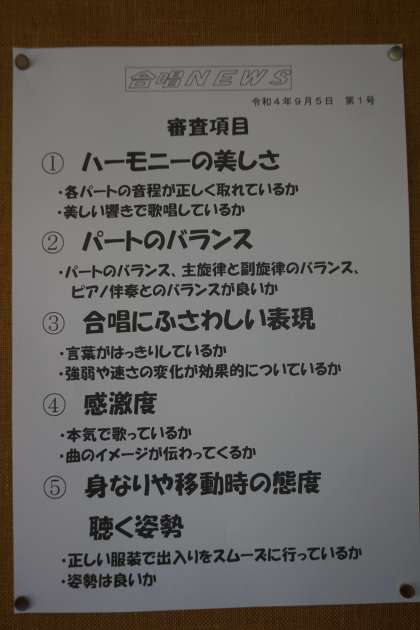 合唱NEWS
令和4年9月5日　第1号
審査項目
① ハーモニーの美しさ
・各パートの音程が正しく取れているか
・美しい響きで歌唱しているか
② パートのバランス
・パートのバランス、主旋律と副旋律のバランス、
ピアノ伴奏とのバランスが良いか
③ 合唱にふさわしい表現
・言葉がはっきりしているか
・強弱や速さの変化が効果的についているか
④ 感激度
・本気で歌っているか
・曲のイメージが伝わってくるか
⑤ 身なりや移動時の態度
聴く姿勢
・正しい服装で出入りをスムーズに行っているか
・姿勢は良いか